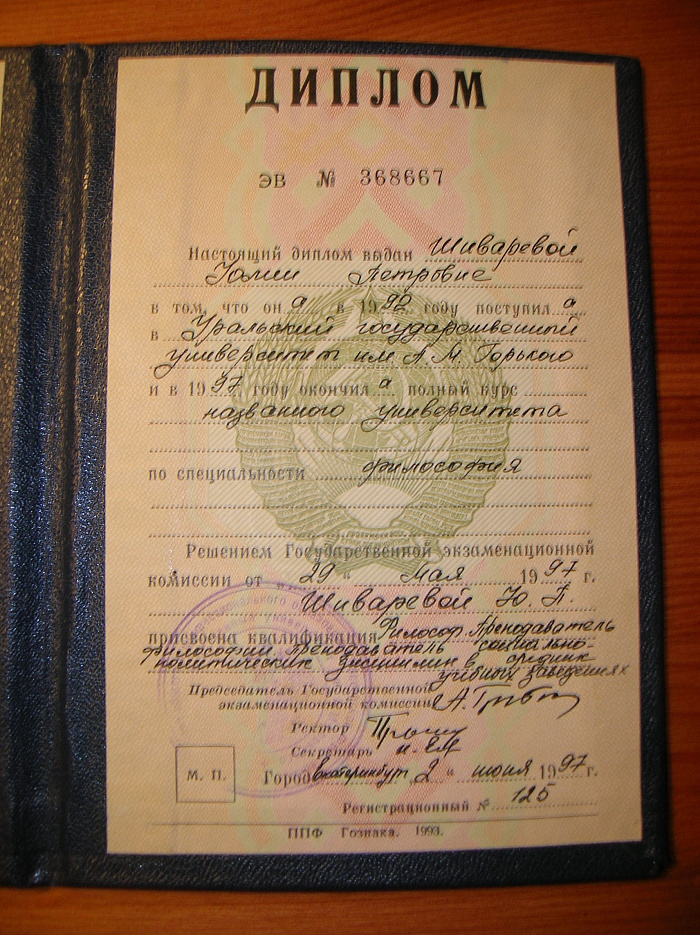 ДИПЛОМ
ЭВ № 368667
Настоящий диплом выдан Шиваревой
Юлии Петровне
в том, что она в 1992 году поступила
в Уральский государственный
университет им. А. М. Горького
и в 1997 году окончила полный курс
названного университета
по специальности философия
Решением Государственной экзаменационной
комиссии от „29“ мая 1997 г.
Шиваревой Ю. П.
присвоена квалификация Философ. Преподаватель
философии, преподаватель социально-
политических дисциплин в средних
учебных заведениях
Председатель Государственной
экзаменационной комиссии
Ректор
Секретарь
М. П.
Город Екатеринбург „2“ июня 1997 г.
Регистрационный № 125
ППФ Гознака. 1993.